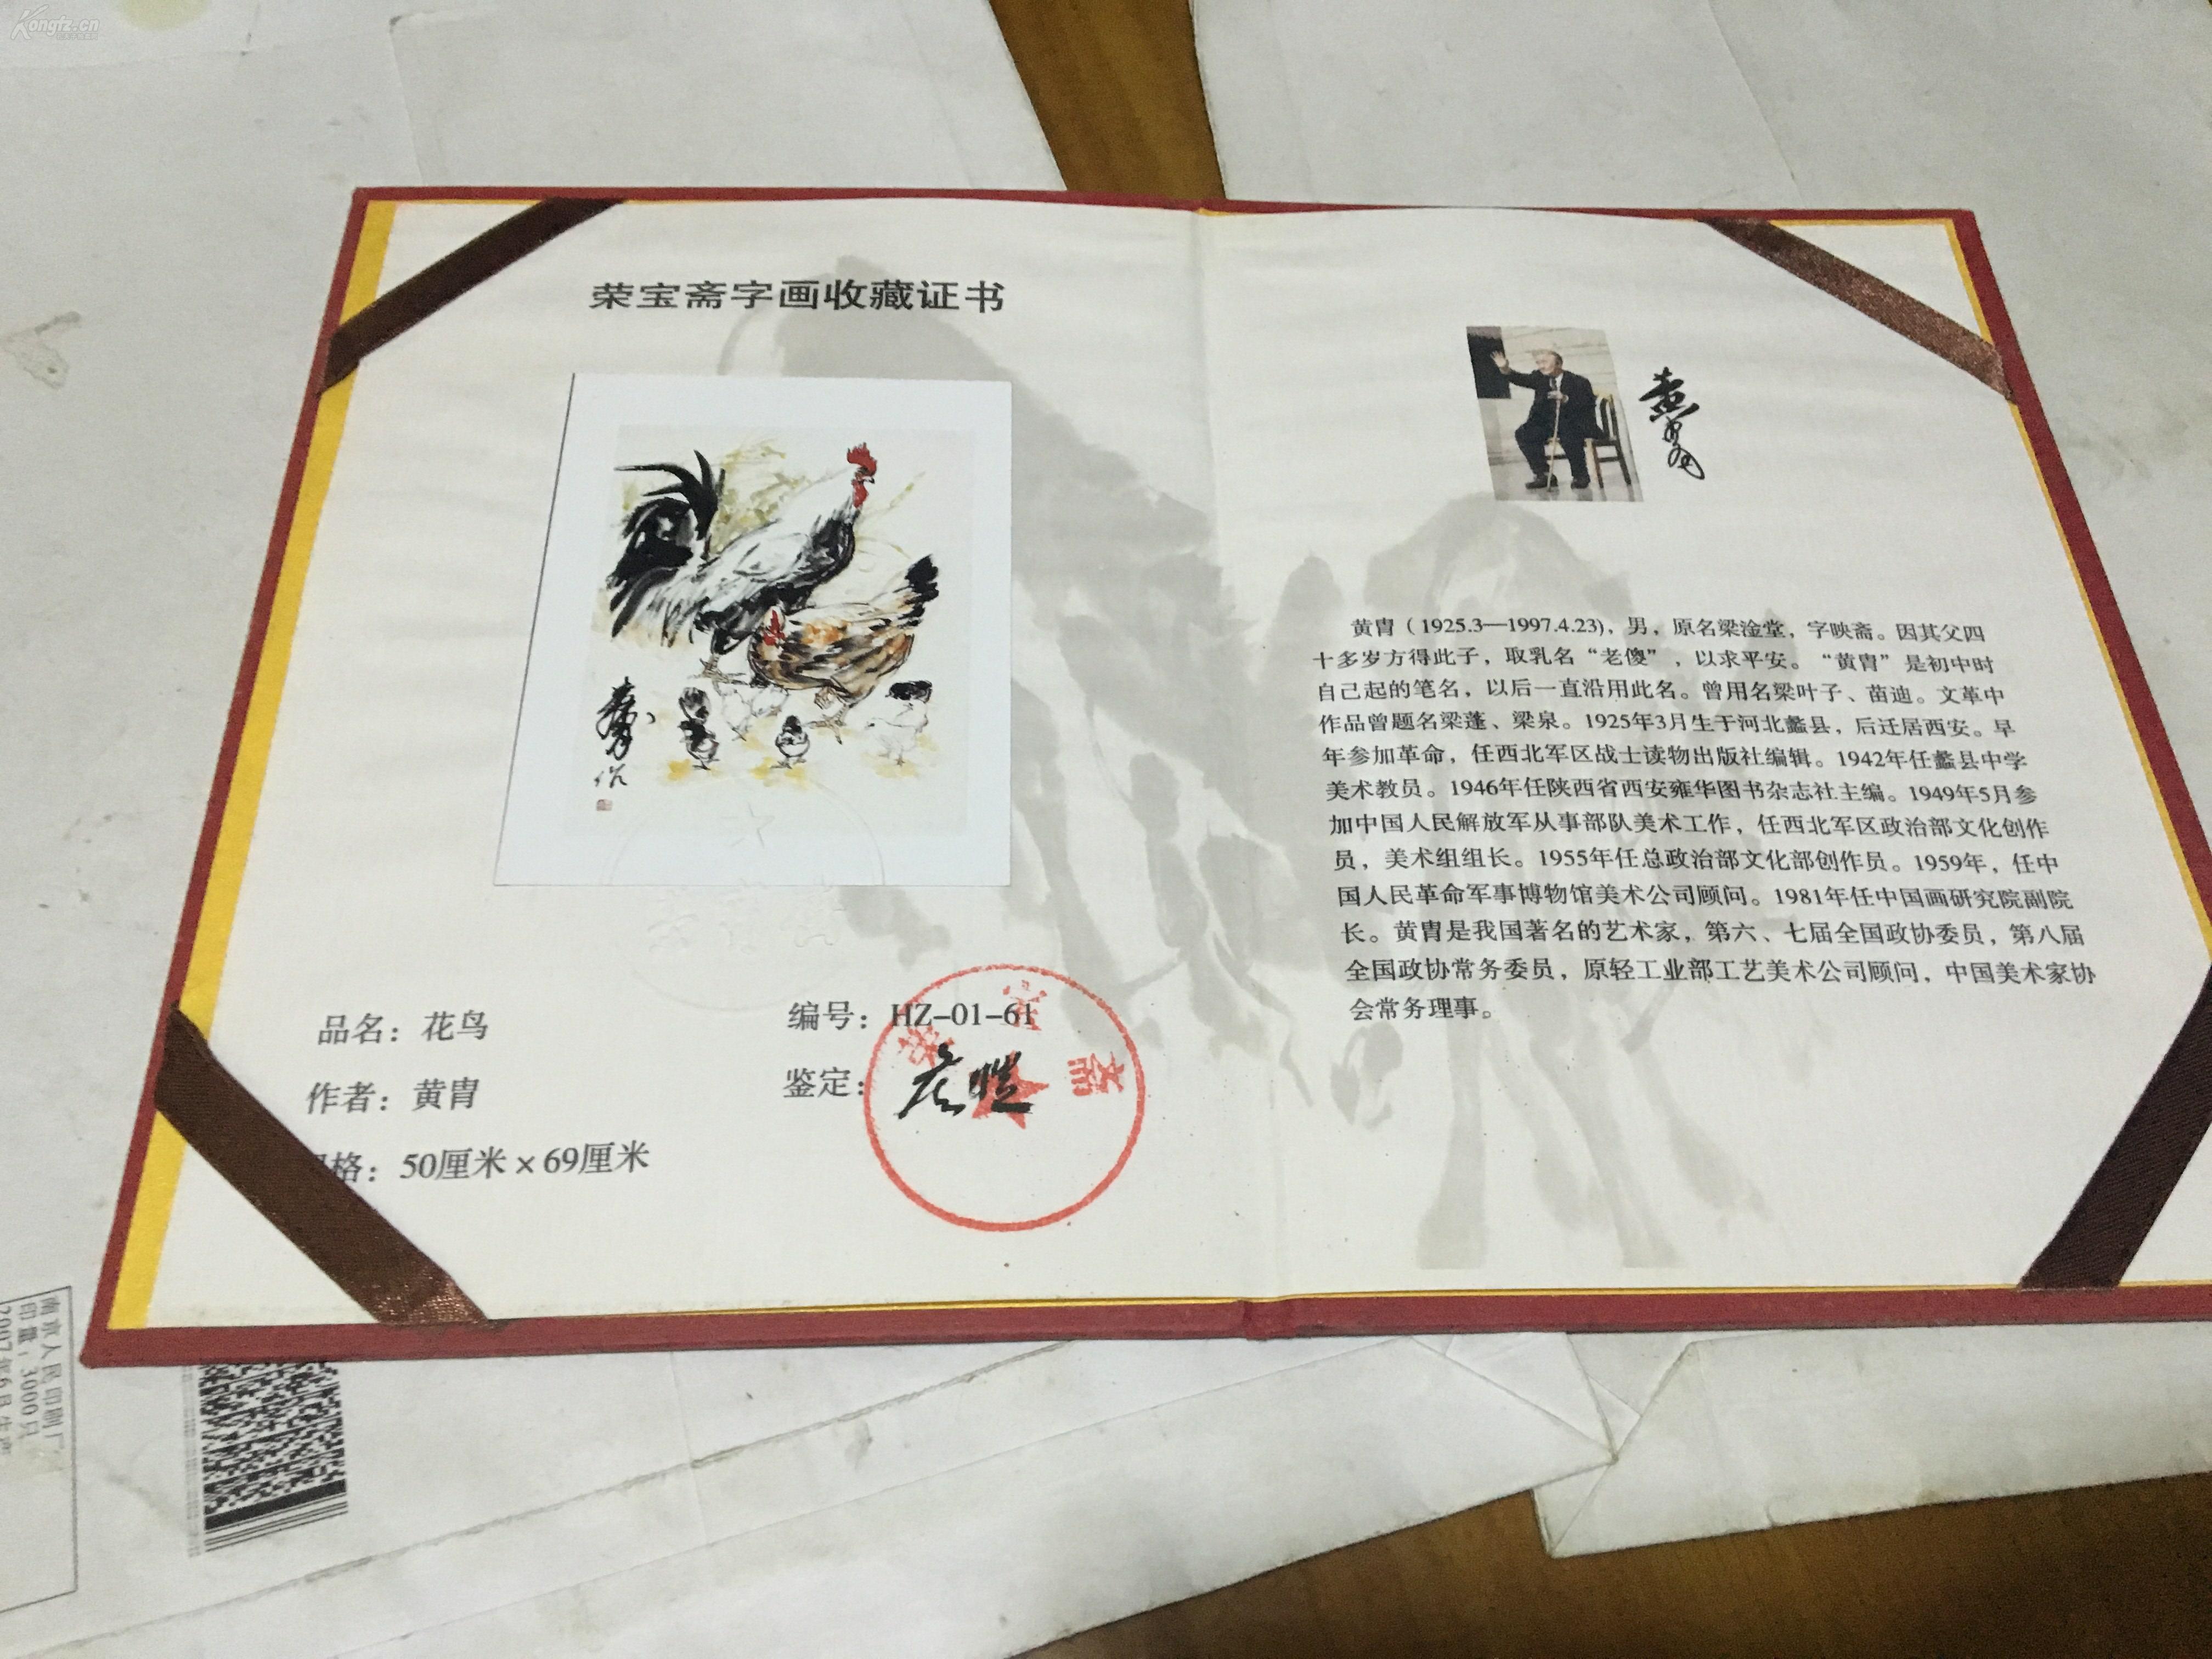 Kongfz.cn
荣宝斋字画收藏证书
作
品名：花鸟
作者：黄胄
格：50厘米×69厘米
编号：HZ-01-61
鉴定：
荣宝斋
黄胄
黄胄（1925.3—1997.4.23)，男，原名梁淦堂，字映斋。因其父四
十多岁方得此子，取乳名“老傻”，以求平安。“黄胄”是初中时
自己起的笔名，以后一直沿用此名。曾用名梁叶子、苗迪。文革中
作品曾题名梁蓬、梁泉。1925年3月生于河北蠡县，后迁居西安。早
年参加革命，任西北军区战士读物出版社编辑。1942年任蠡县中学
美术教员。1946年任陕西省西安雍华图书杂志社主编。1949年5月参
加中国人民解放军从事部队美术工作，任西北军区政治部文化创作
员，美术组组长。1955年任总政治部文化部创作员。1959年，任中
国人民革命军事博物馆美术公司顾问。1981年任中国画研究院副院
长。黄胄是我国著名的艺术家，第六、七届全国政协委员，第八届
全国政协常务委员，原轻工业部工艺美术公司顾问，中国美术家协
会常务理事。
南京人民印刷厂
印量：3000只
2007年6月生产